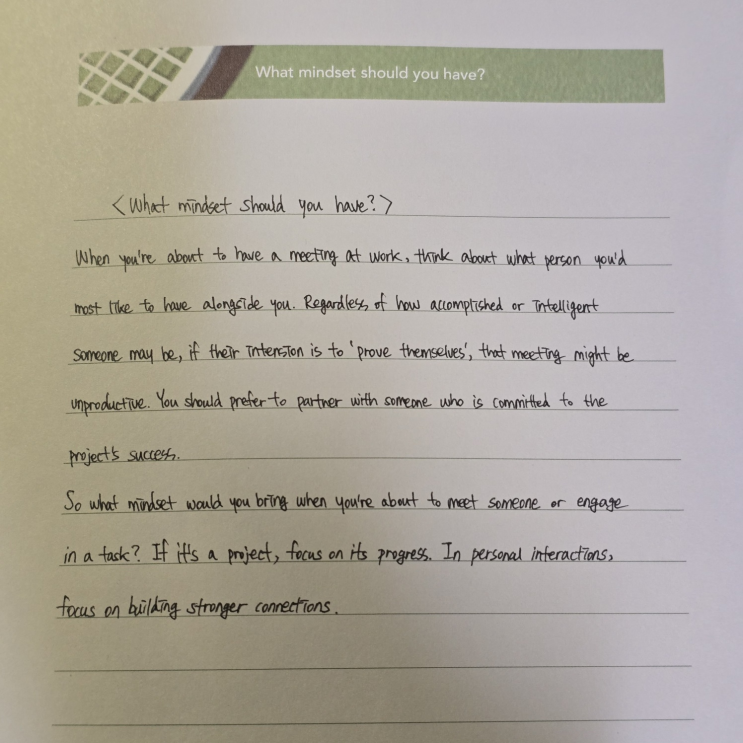 What mindset should you have?
<What mindset should you have?>
When you're about to have a meeting at work, think about what person you'd
most like to have alongside you. Regardless of how accomplished or intelligent
someone may be, if their intension is to 'prove themselves', that meeting might be
unproductive. You should prefer to partner with someone who is committed to the
project's success.
So what mindset would you bring when you're about to meet someone or engage
in a task? If it's a project, focus on its progress. In personal interactions,
focus on building stronger connections.